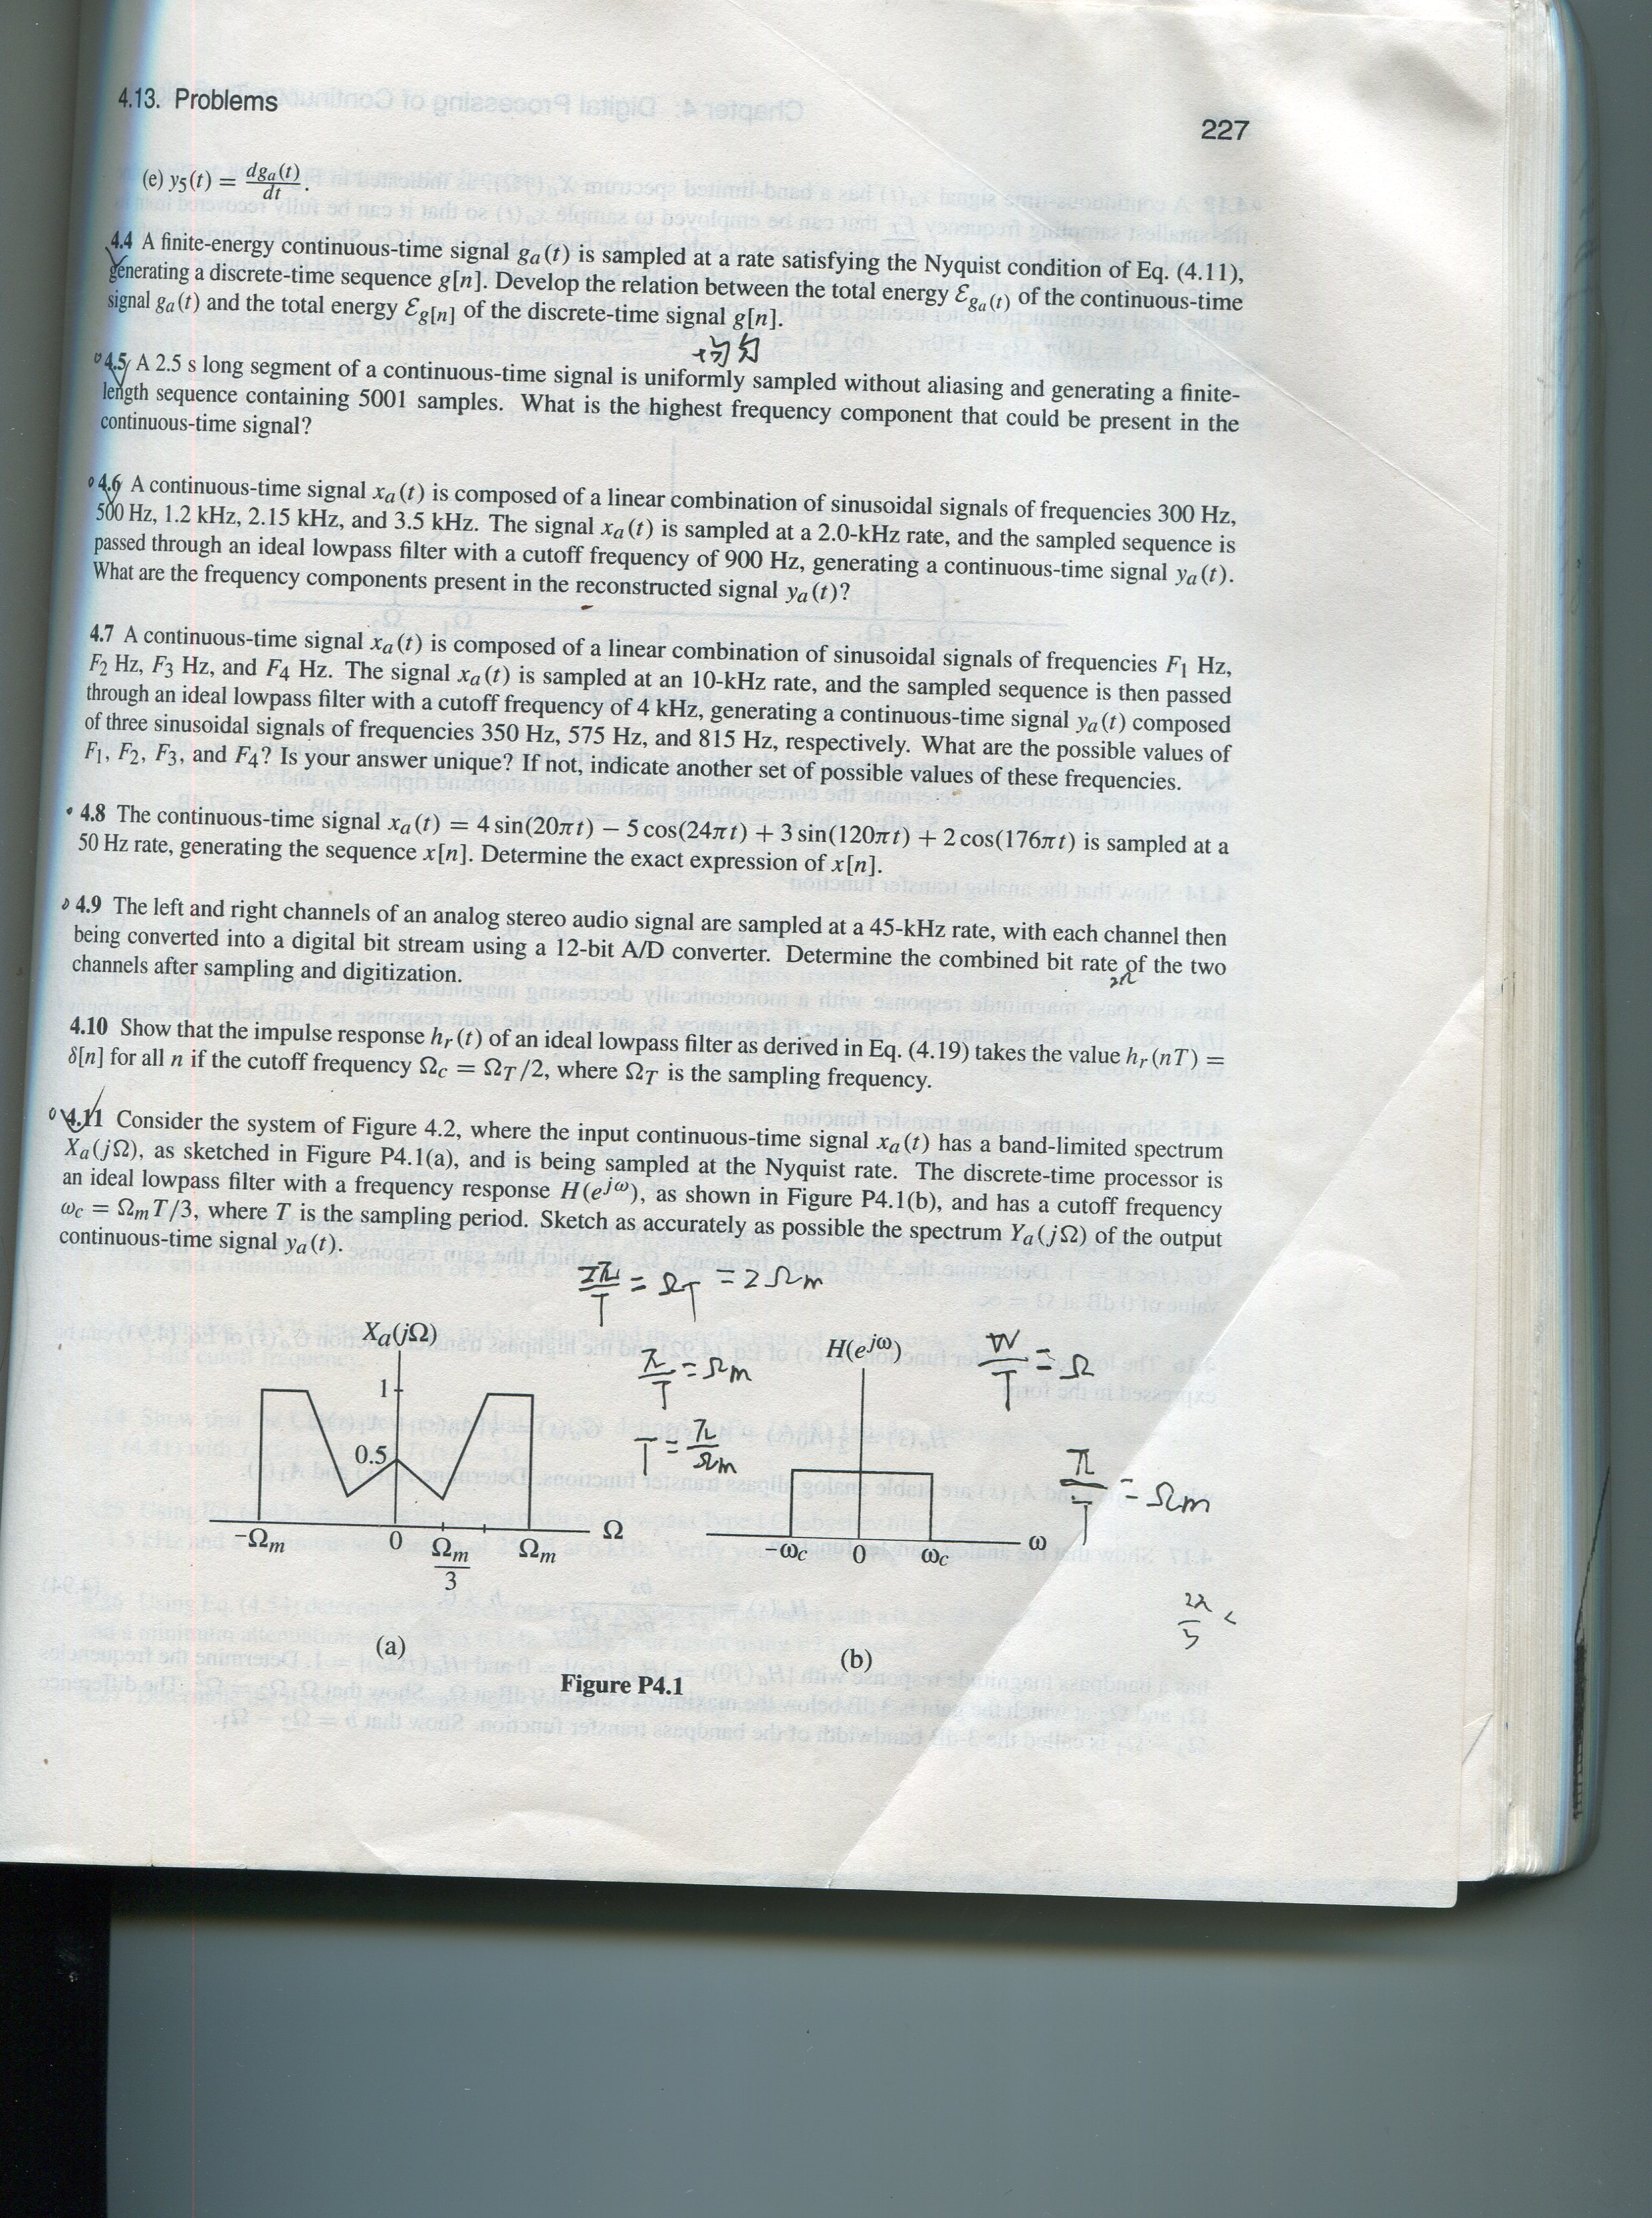 4.13. Problems
227
(e) y₅(t) = dgₐ(t)/dt.
4.4 A finite-energy continuous-time signal gₐ(t) is sampled at a rate satisfying the Nyquist condition of Eq. (4.11),
generating a discrete-time sequence g[n]. Develop the relation between the total energy ℰ_gₐ(t) of the continuous-time
signal gₐ(t) and the total energy ℰ_g[n] of the discrete-time signal g[n].
均匀
4.5 A 2.5 s long segment of a continuous-time signal is uniformly sampled without aliasing and generating a finite-
length sequence containing 5001 samples. What is the highest frequency component that could be present in the
continuous-time signal?
4.6 A continuous-time signal xₐ(t) is composed of a linear combination of sinusoidal signals of frequencies 300 Hz,
500 Hz, 1.2 kHz, 2.15 kHz, and 3.5 kHz. The signal xₐ(t) is sampled at a 2.0-kHz rate, and the sampled sequence is
passed through an ideal lowpass filter with a cutoff frequency of 900 Hz, generating a continuous-time signal yₐ(t).
What are the frequency components present in the reconstructed signal yₐ(t)?
4.7 A continuous-time signal xₐ(t) is composed of a linear combination of sinusoidal signals of frequencies F₁ Hz,
F₂ Hz, F₃ Hz, and F₄ Hz. The signal xₐ(t) is sampled at an 10-kHz rate, and the sampled sequence is then passed
through an ideal lowpass filter with a cutoff frequency of 4 kHz, generating a continuous-time signal yₐ(t) composed
of three sinusoidal signals of frequencies 350 Hz, 575 Hz, and 815 Hz, respectively. What are the possible values of
F₁, F₂, F₃, and F₄? Is your answer unique? If not, indicate another set of possible values of these frequencies.
4.8 The continuous-time signal xₐ(t) = 4 sin(20πt) − 5 cos(24πt) + 3 sin(120πt) + 2 cos(176πt) is sampled at a
50 Hz rate, generating the sequence x[n]. Determine the exact expression of x[n].
4.9 The left and right channels of an analog stereo audio signal are sampled at a 45-kHz rate, with each channel then
being converted into a digital bit stream using a 12-bit A/D converter. Determine the combined bit rate of the two
channels after sampling and digitization.
4.10 Show that the impulse response hᵣ(t) of an ideal lowpass filter as derived in Eq. (4.19) takes the value hᵣ(nT) =
δ[n] for all n if the cutoff frequency Ω_c = Ω_T/2, where Ω_T is the sampling frequency.
4.11 Consider the system of Figure 4.2, where the input continuous-time signal xₐ(t) has a band-limited spectrum
Xₐ(jΩ), as sketched in Figure P4.1(a), and is being sampled at the Nyquist rate. The discrete-time processor is
an ideal lowpass filter with a frequency response H(e^jω), as shown in Figure P4.1(b), and has a cutoff frequency
ω_c = Ω_m T/3, where T is the sampling period. Sketch as accurately as possible the spectrum Yₐ(jΩ) of the output
continuous-time signal yₐ(t).
2π/T = Ω_T = 2Ωm
Xₐ(jΩ)
1
0.5
−Ω_m 0 Ω_m/3 Ω_m Ω
(a)
π/T = Ωm
T = π/Ωm
H(e^jω)
−ω_c 0 ω_c ω
(b)
W/T = Ω
π/T = Ωm
Figure P4.1